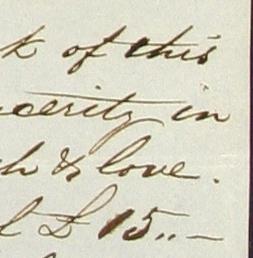 k of this
cerity in
h & love.
£ 15,,—